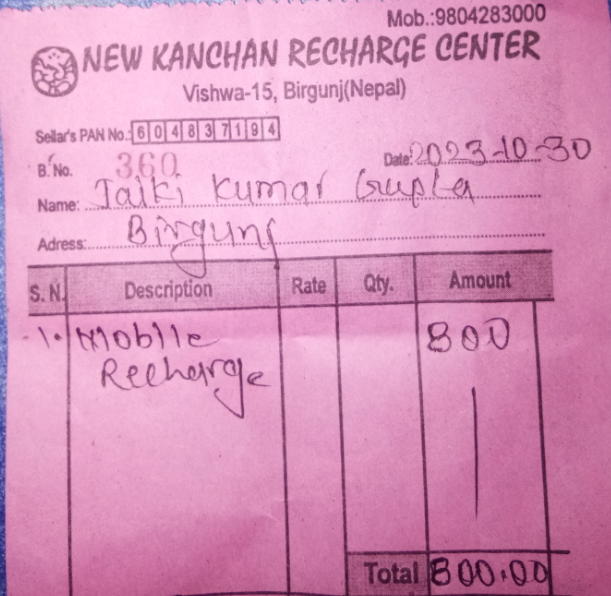 Mob.:9804283000
NEW KANCHAN RECHARGE CENTER
Vishwa-15, Birgunj(Nepal)
Sellar's PAN No.: 604837194
B. No. 360 Date: 2023-10-30
Name: Jalki Kumar Gupta
Adress: Birgunj
S. N. Description Rate Qty. Amount
1. Mobile 800
Recharge
Total 800.00